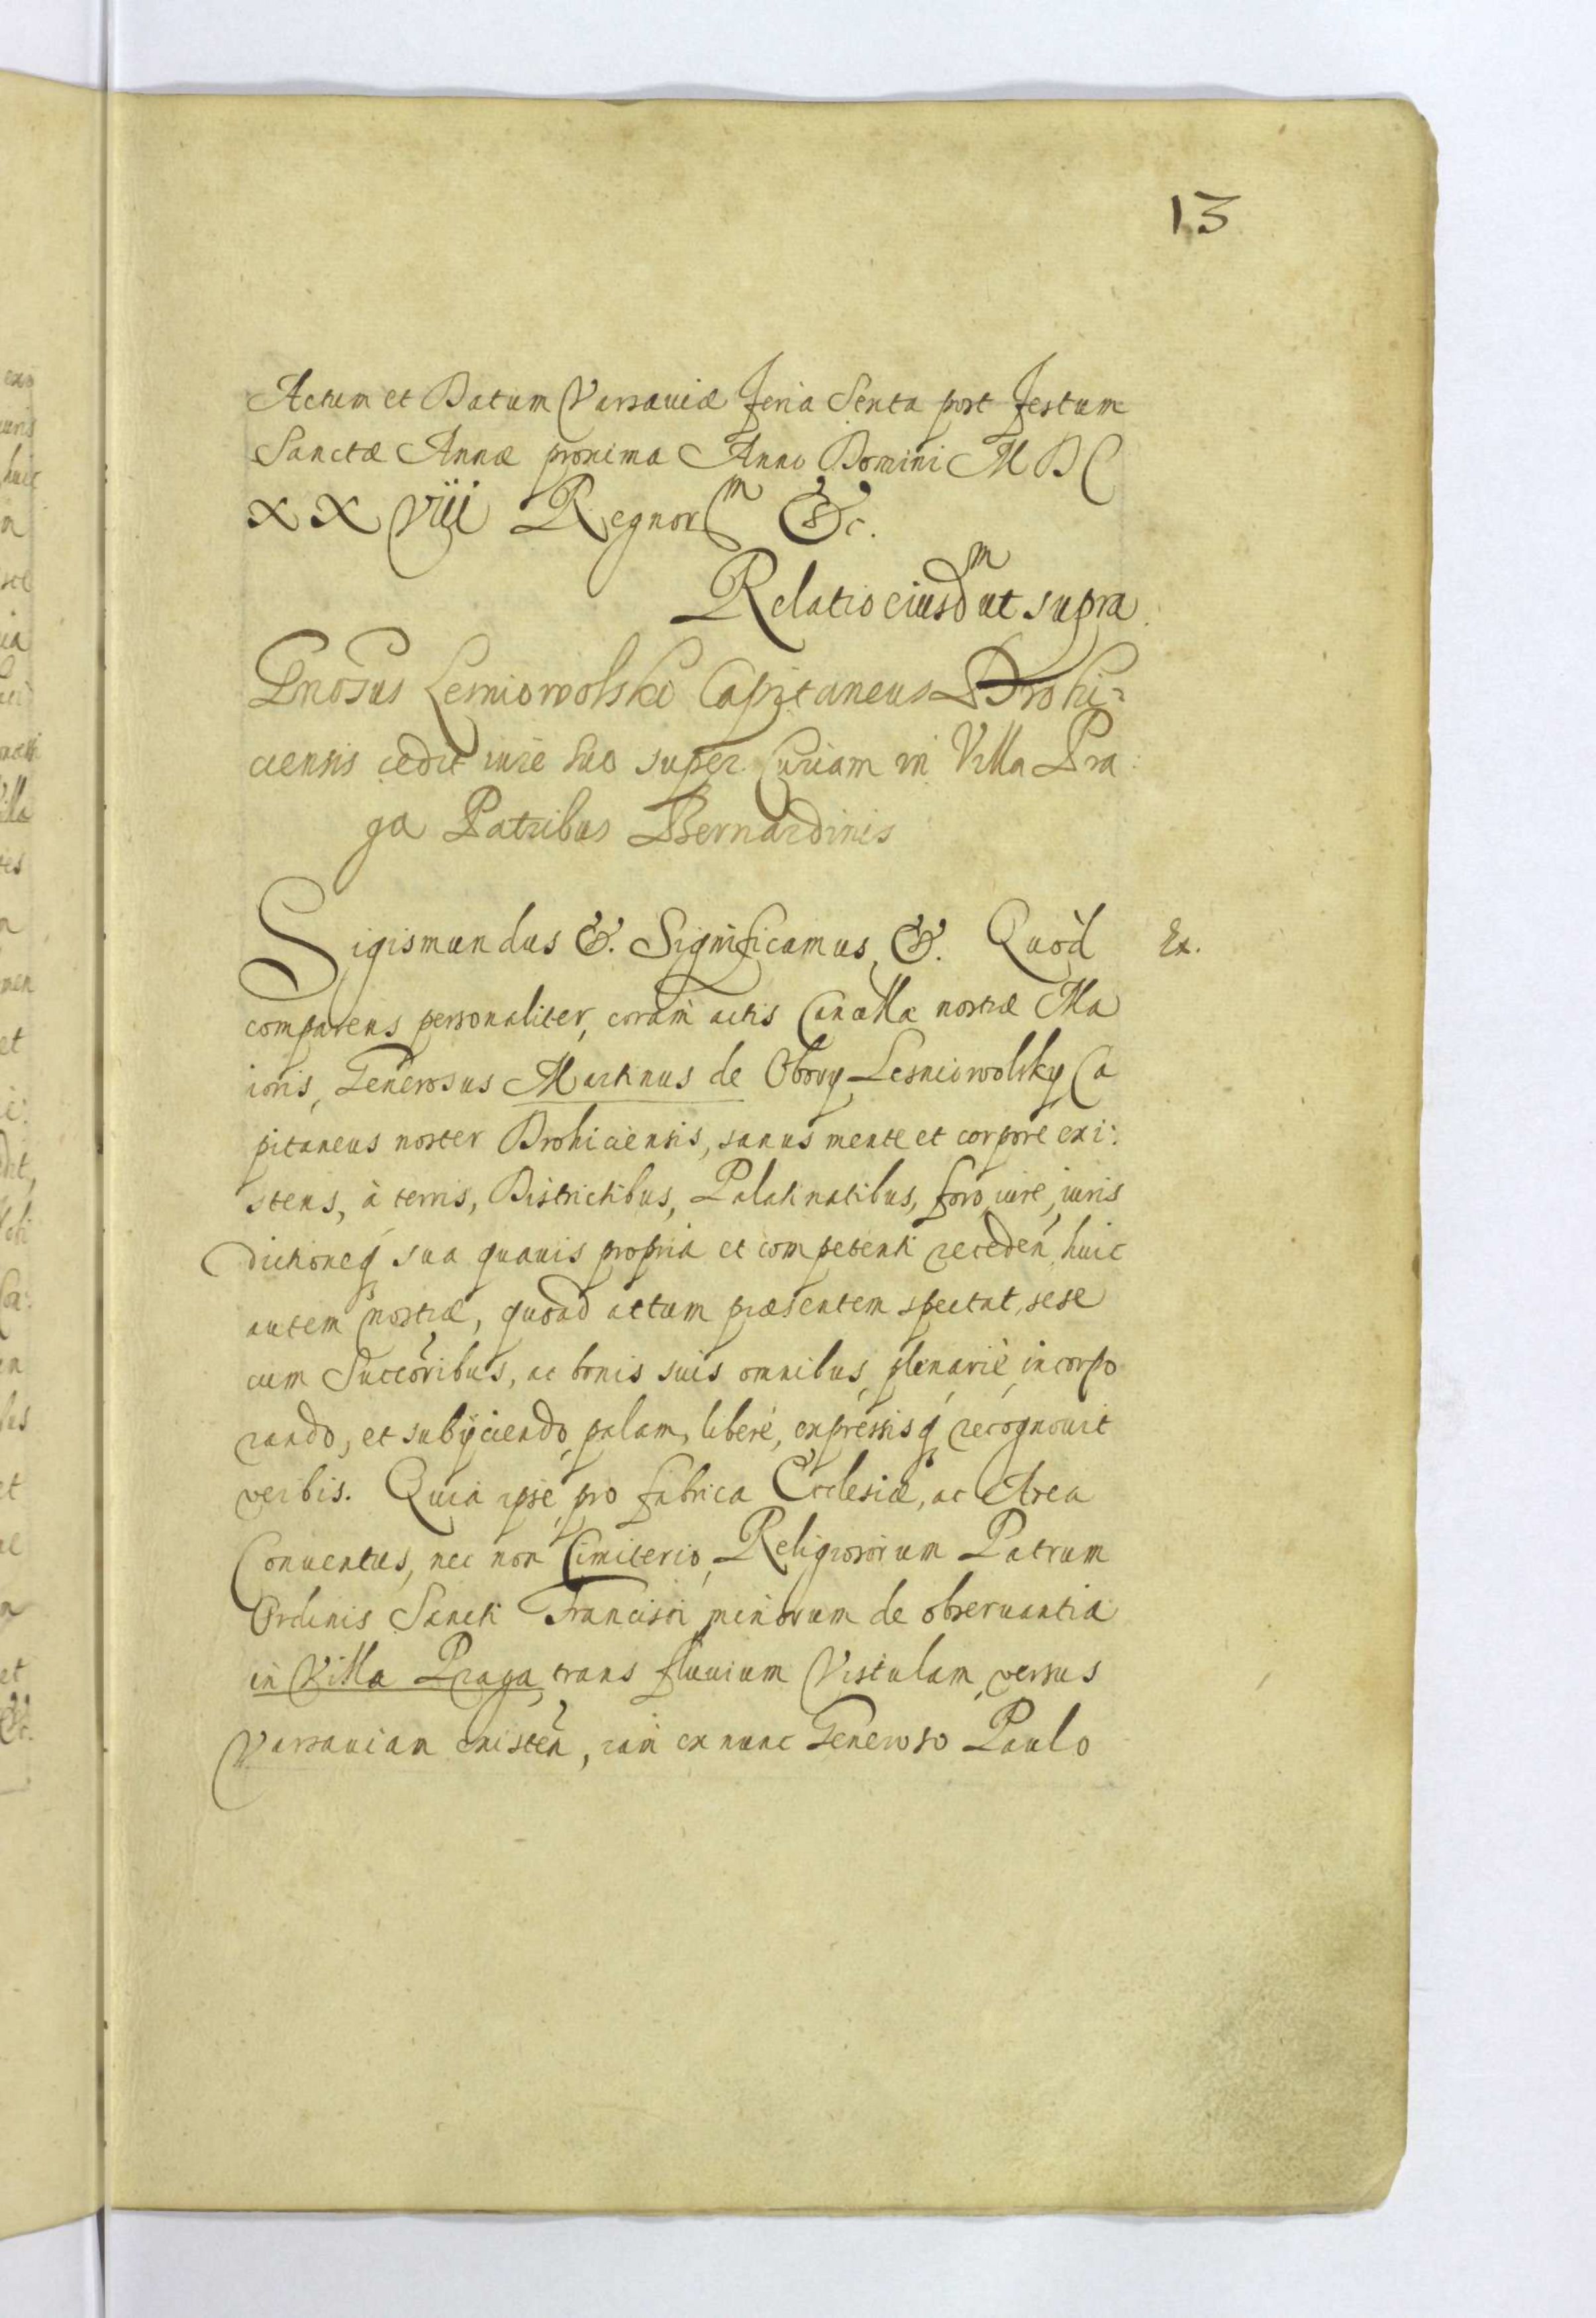 13
Actum et Datum Varsauiæ feria Sexta post festum
Sanctæ Annæ proxima Anno Domini M D C
XX viii Regnorm &c.
Relatio eiusdm ut supra.
Gnosus Lesniowolski Capitaneus Drohi=
ciensis cedit iure suo super Curiam in Villa Pra:
ga Patribus Bernardinis
Sigismundus &. Significamus, &. Quòd Ex.
comparens personaliter, coram actis Cancellæ nostræ Ma
ioris, Generosus Martinus de Obory Lesniowolsky Ca
pitaneus noster Drohiciensis, sanus mente et corpore exi:
stens, à terris, Districtibus, Palatinatibus, foro, iure, iuris
dictioneq sua quauis propria et competenti receden, huic
autem nostræ, quoad actum præsentem spectat, sese
cum Succoribus, ac bonis suis omnibus, plenariè incorpo
rando, et subijciendo, palam, liberè, expressisq recognouit
verbis. Quia ipse, pro fabrica Ecclesiæ, ac Area
Conuentus, nec non Cimiterio, Religiosorum Patrum
Ordinis Sancti Francisci minorum de obseruantia
in Villa Praga, trans fluuium Vistulam, versus
Varsauiam existen, iam ex nunc Generoso Paulo